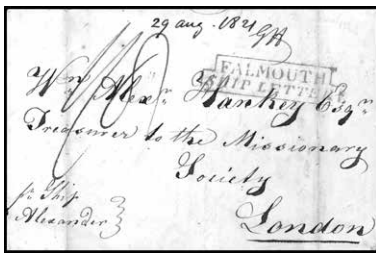 29 aug. 1821
FALMOUTH
SHIP LETTER
Wm Alexr Hankey Esqr
Treasurer to the Missionary
Society
London
pr Ship
Alexander